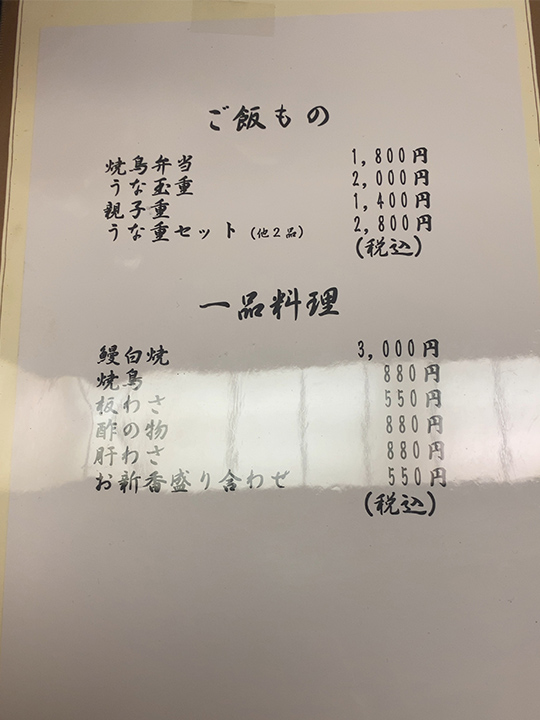 ご飯もの
焼鳥弁当 1,800円
うな玉重 2,000円
親子重 1,400円
うな重セット (他2品) 2,800円
(税込)
一品料理
鰻白焼 3,000円
焼鳥 880円
板わさ 550円
酢の物 880円
肝わさ 880円
お新香盛り合わせ 550円
(税込)